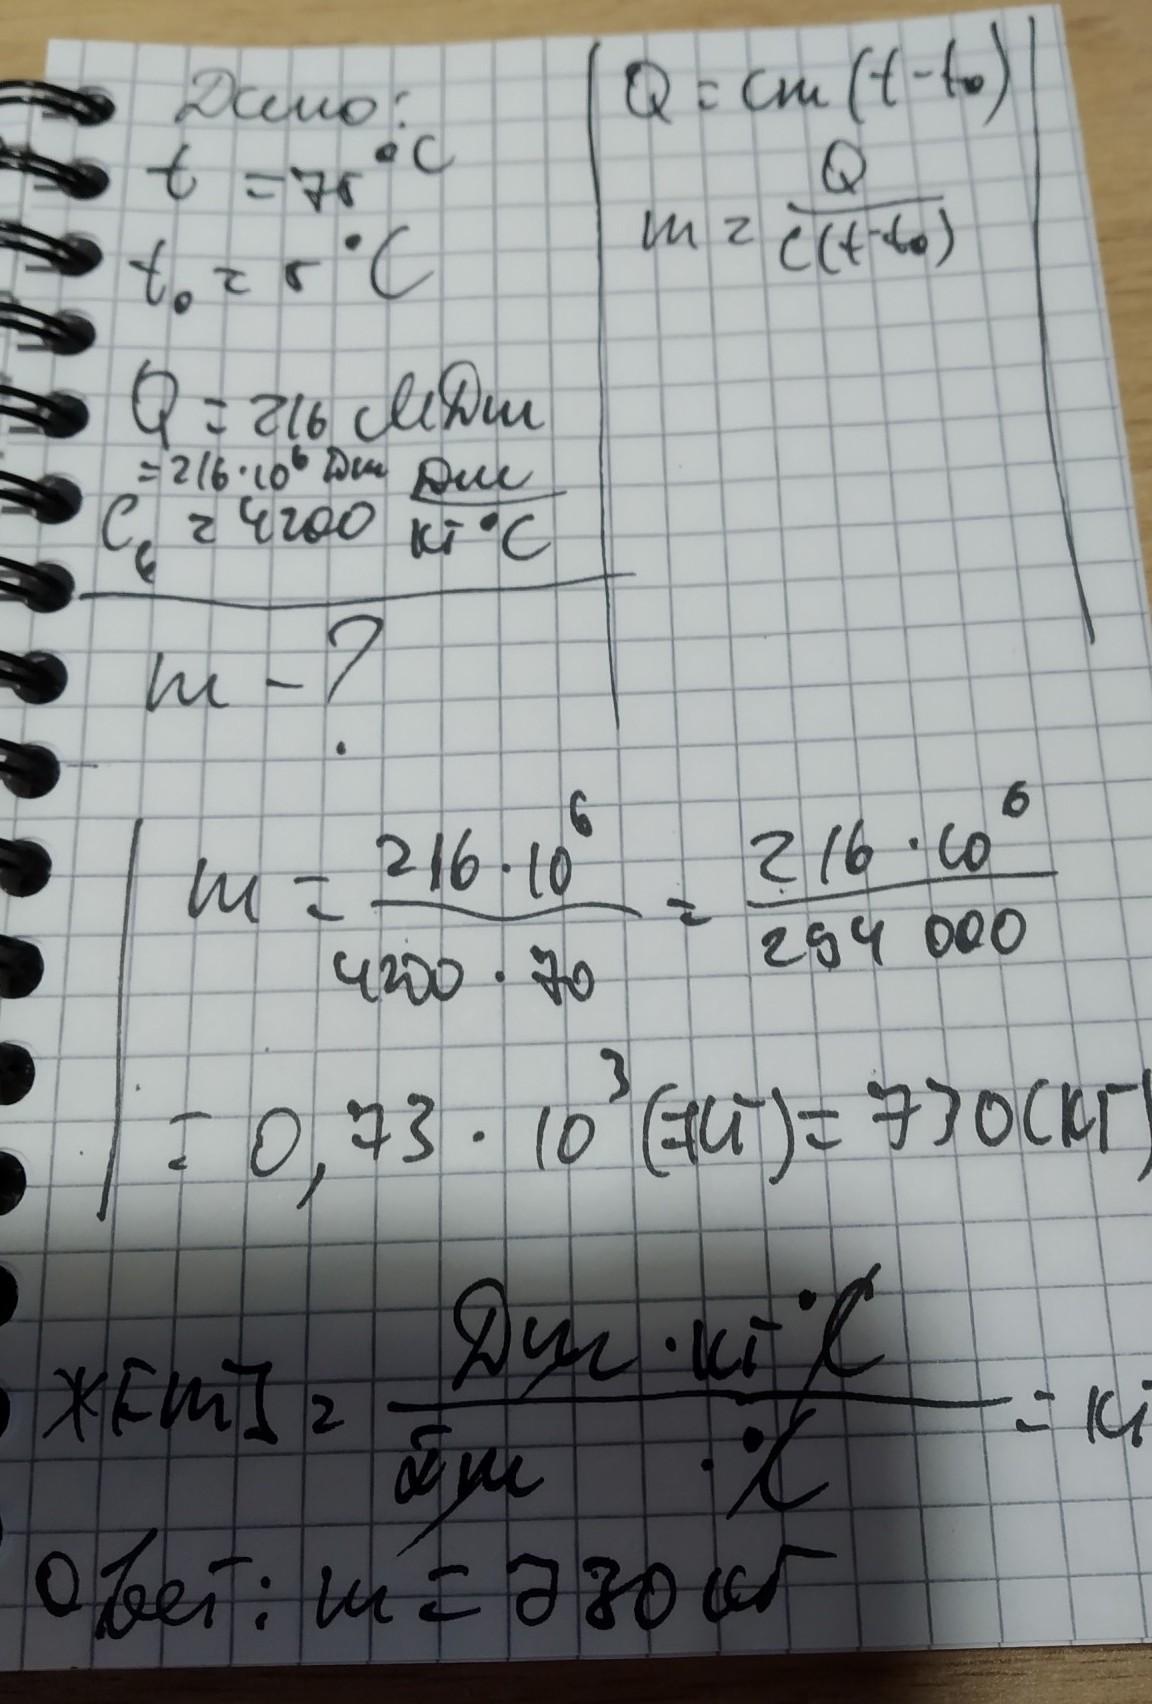 Дано:
t = 75 °C
t₀ = 5 °C
Q = 216 МДж
= 216·10⁶ Дж
Cв = 4200 Дж/кг°C
m - ?
Q = cm(t-t₀)
m = Q/c(t-t₀)
m = 216·10⁶/4200·70 = 216·10⁶/294 000
= 0,73·10³(кг) = 730(кг)
*[m] = Дж·кг°C/Дж·°C = кг
Ответ: m = 730 кг